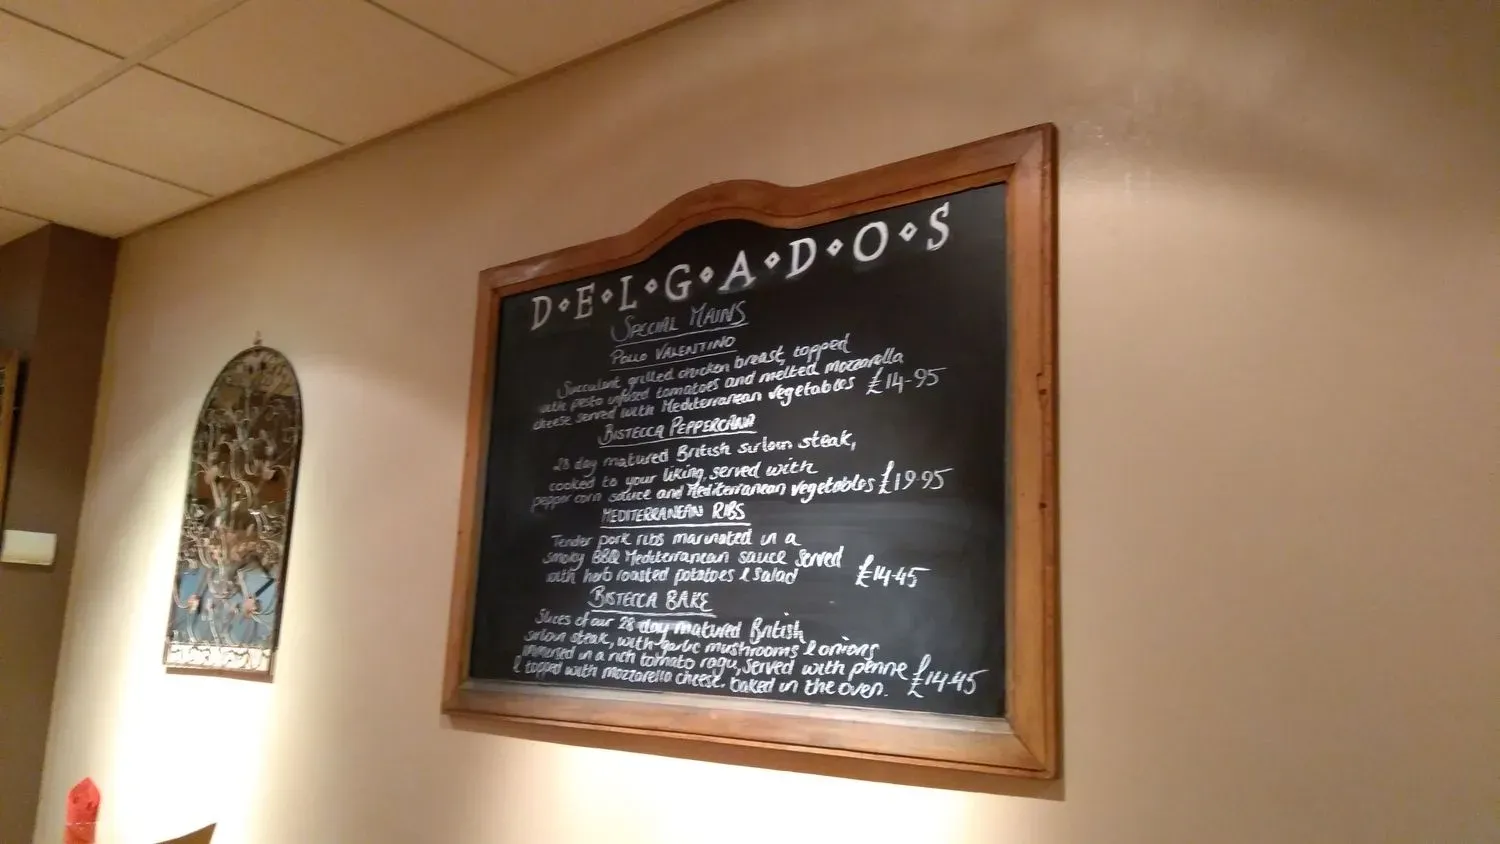 D·E·L·G·A·D·O·S
SPECIAL MAINS
POLLO VALENTINO
Succulent grilled chicken breast, topped
with pesto infused tomatoes and melted mozzarella
cheese served with Mediterranean vegetables £14-95
BISTECCA PEPPERCANA
28 day matured British sirloin steak,
cooked to your liking, served with
pepper corn sauce and Mediterranean vegetables £19.95
MEDITERRANEAN RIBS
Tender pork ribs marinated in a
smoky BBQ Mediterranean sauce served
with herb roasted potatoes & salad £14-45
BISTECCA BAKE
Slices of our 28 day matured British
sirloin steak, with garlic mushrooms & onions
immersed in a rich tomato ragu, served with penne
& topped with mozzarella cheese. baked in the oven. £14.45